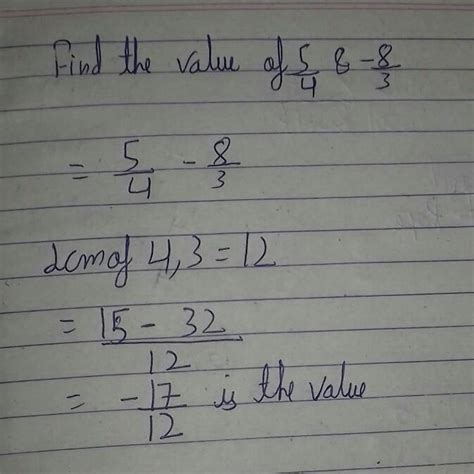 Find the value of 5/4 & -8/3
= 5/4 - 8/3
Lcm of 4,3 = 12
= 15 - 32 / 12
= -17/12 is the value